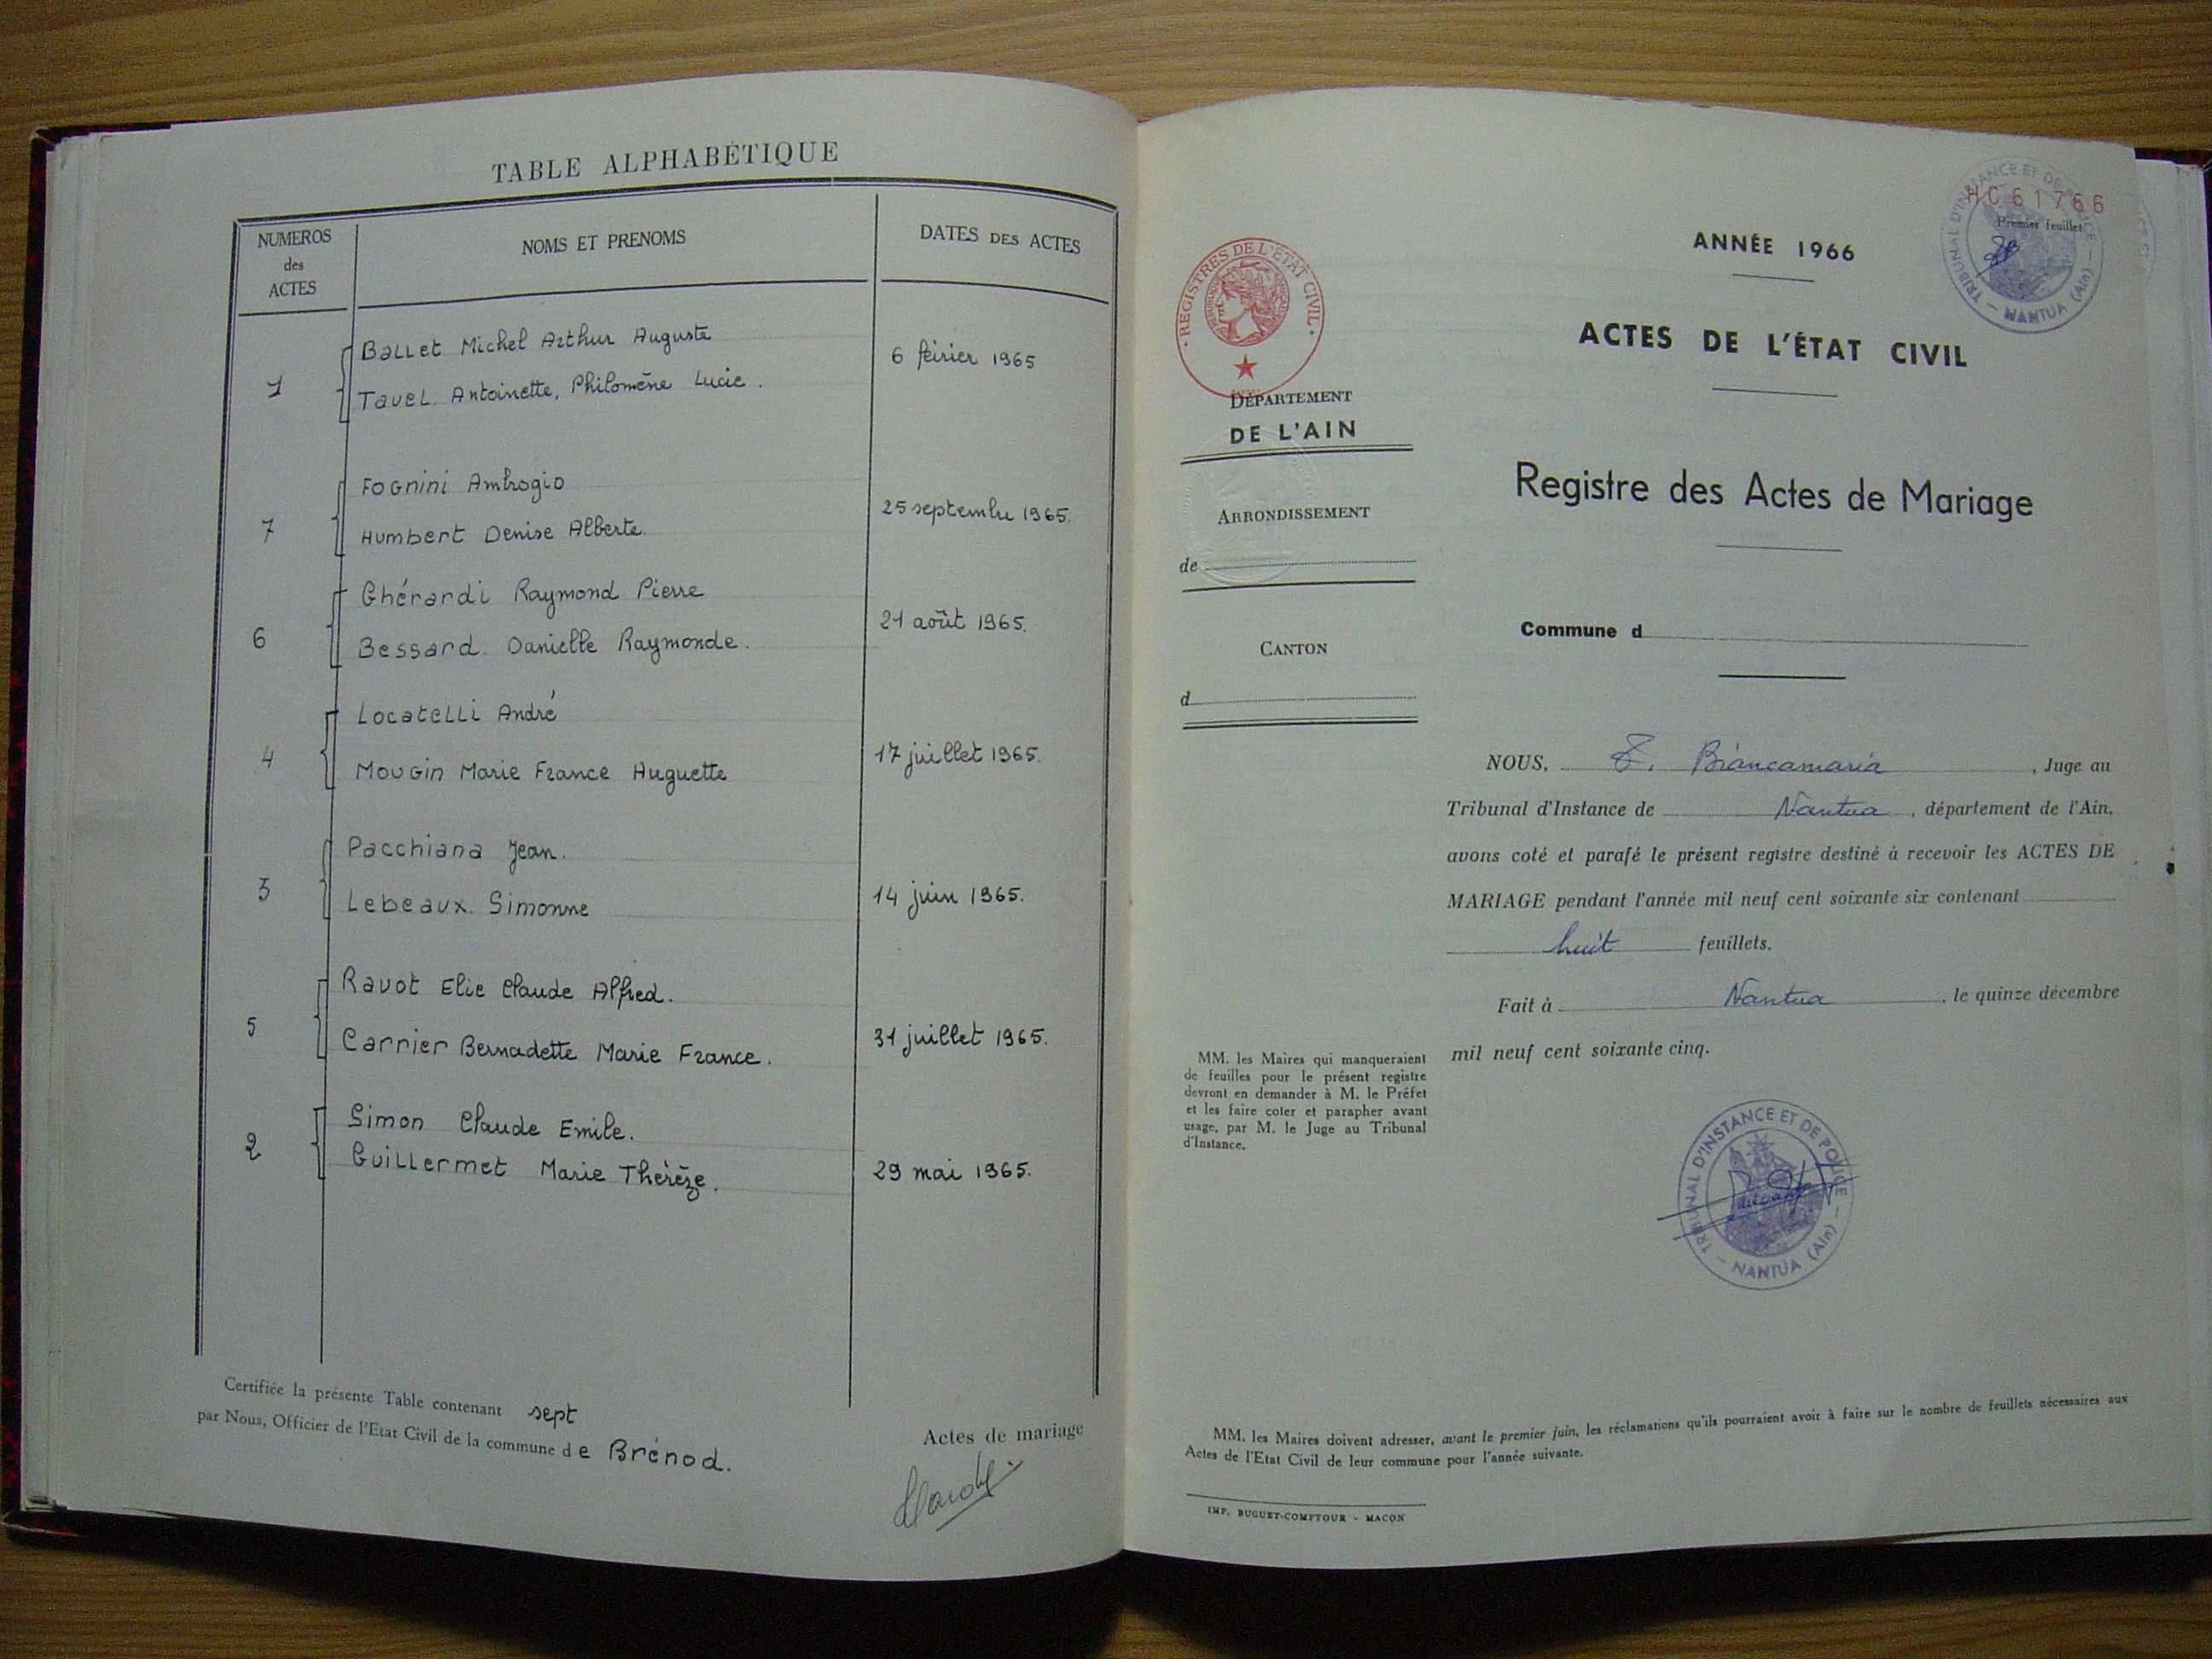 TABLE ALPHABÉTIQUE
NUMEROS
des
ACTES
NOMS ET PRENOMS
DATES DES ACTES
1
Ballet Michel Arthur Auguste
Tavel Antoinette, Philomène Lucie.
6 février 1965
7
Fognini Ambrogio
Humbert Denise Alberte.
25 septembre 1965.
6
Ghérardi Raymond Pierre
Bessard. Danielle Raymonde.
21 août 1965.
4
Locatelli André
Mougin Marie France Huguette
17 juillet 1965.
3
Pacchiana Jean.
Lebeaux. Simonne
14 juin 1965.
5
Ravot Elie Claude Alfred.
Carrier Bernadette Marie France.
31 juillet 1965.
2
Simon Claude Emile.
Guillermet Marie Thérèse.
29 mai 1965.
Certifiée la présente Table contenant sept Actes de mariage
par Nous, Officier de l'Etat Civil de la commune de Brénod.
HC61766
Premier feuillet
TRIBUNAL D'INSTANCE ET DE POLICE
NANTUA (Ain)
REGISTRES DE L'ÉTAT CIVIL
DÉPARTEMENT
DE L'AIN
ARRONDISSEMENT
de
CANTON
d
MM. les Maires qui manqueraient
de feuilles pour le présent registre
devront en demander à M. le Préfet
et les faire coter et parapher avant
usage, par M. le Juge au Tribunal
d'Instance.
ANNÉE 1966
ACTES DE L'ÉTAT CIVIL
Registre des Actes de Mariage
Commune d
NOUS, Biancamaria, Juge au
Tribunal d'Instance de Nantua, département de l'Ain,
avons coté et parafé le présent registre destiné à recevoir les ACTES DE
MARIAGE pendant l'année mil neuf cent soixante six contenant
huit feuillets.
Fait à Nantua, le quinze décembre
mil neuf cent soixante cinq.
TRIBUNAL D'INSTANCE ET DE POLICE
NANTUA (Ain)
MM. les Maires doivent adresser, avant le premier juin, les réclamations qu'ils pourraient avoir à faire sur le nombre de feuillets nécessaires aux
Actes de l'Etat Civil de leur commune pour l'année suivante.
IMP. BUGUET-COMPTOUR - MACON